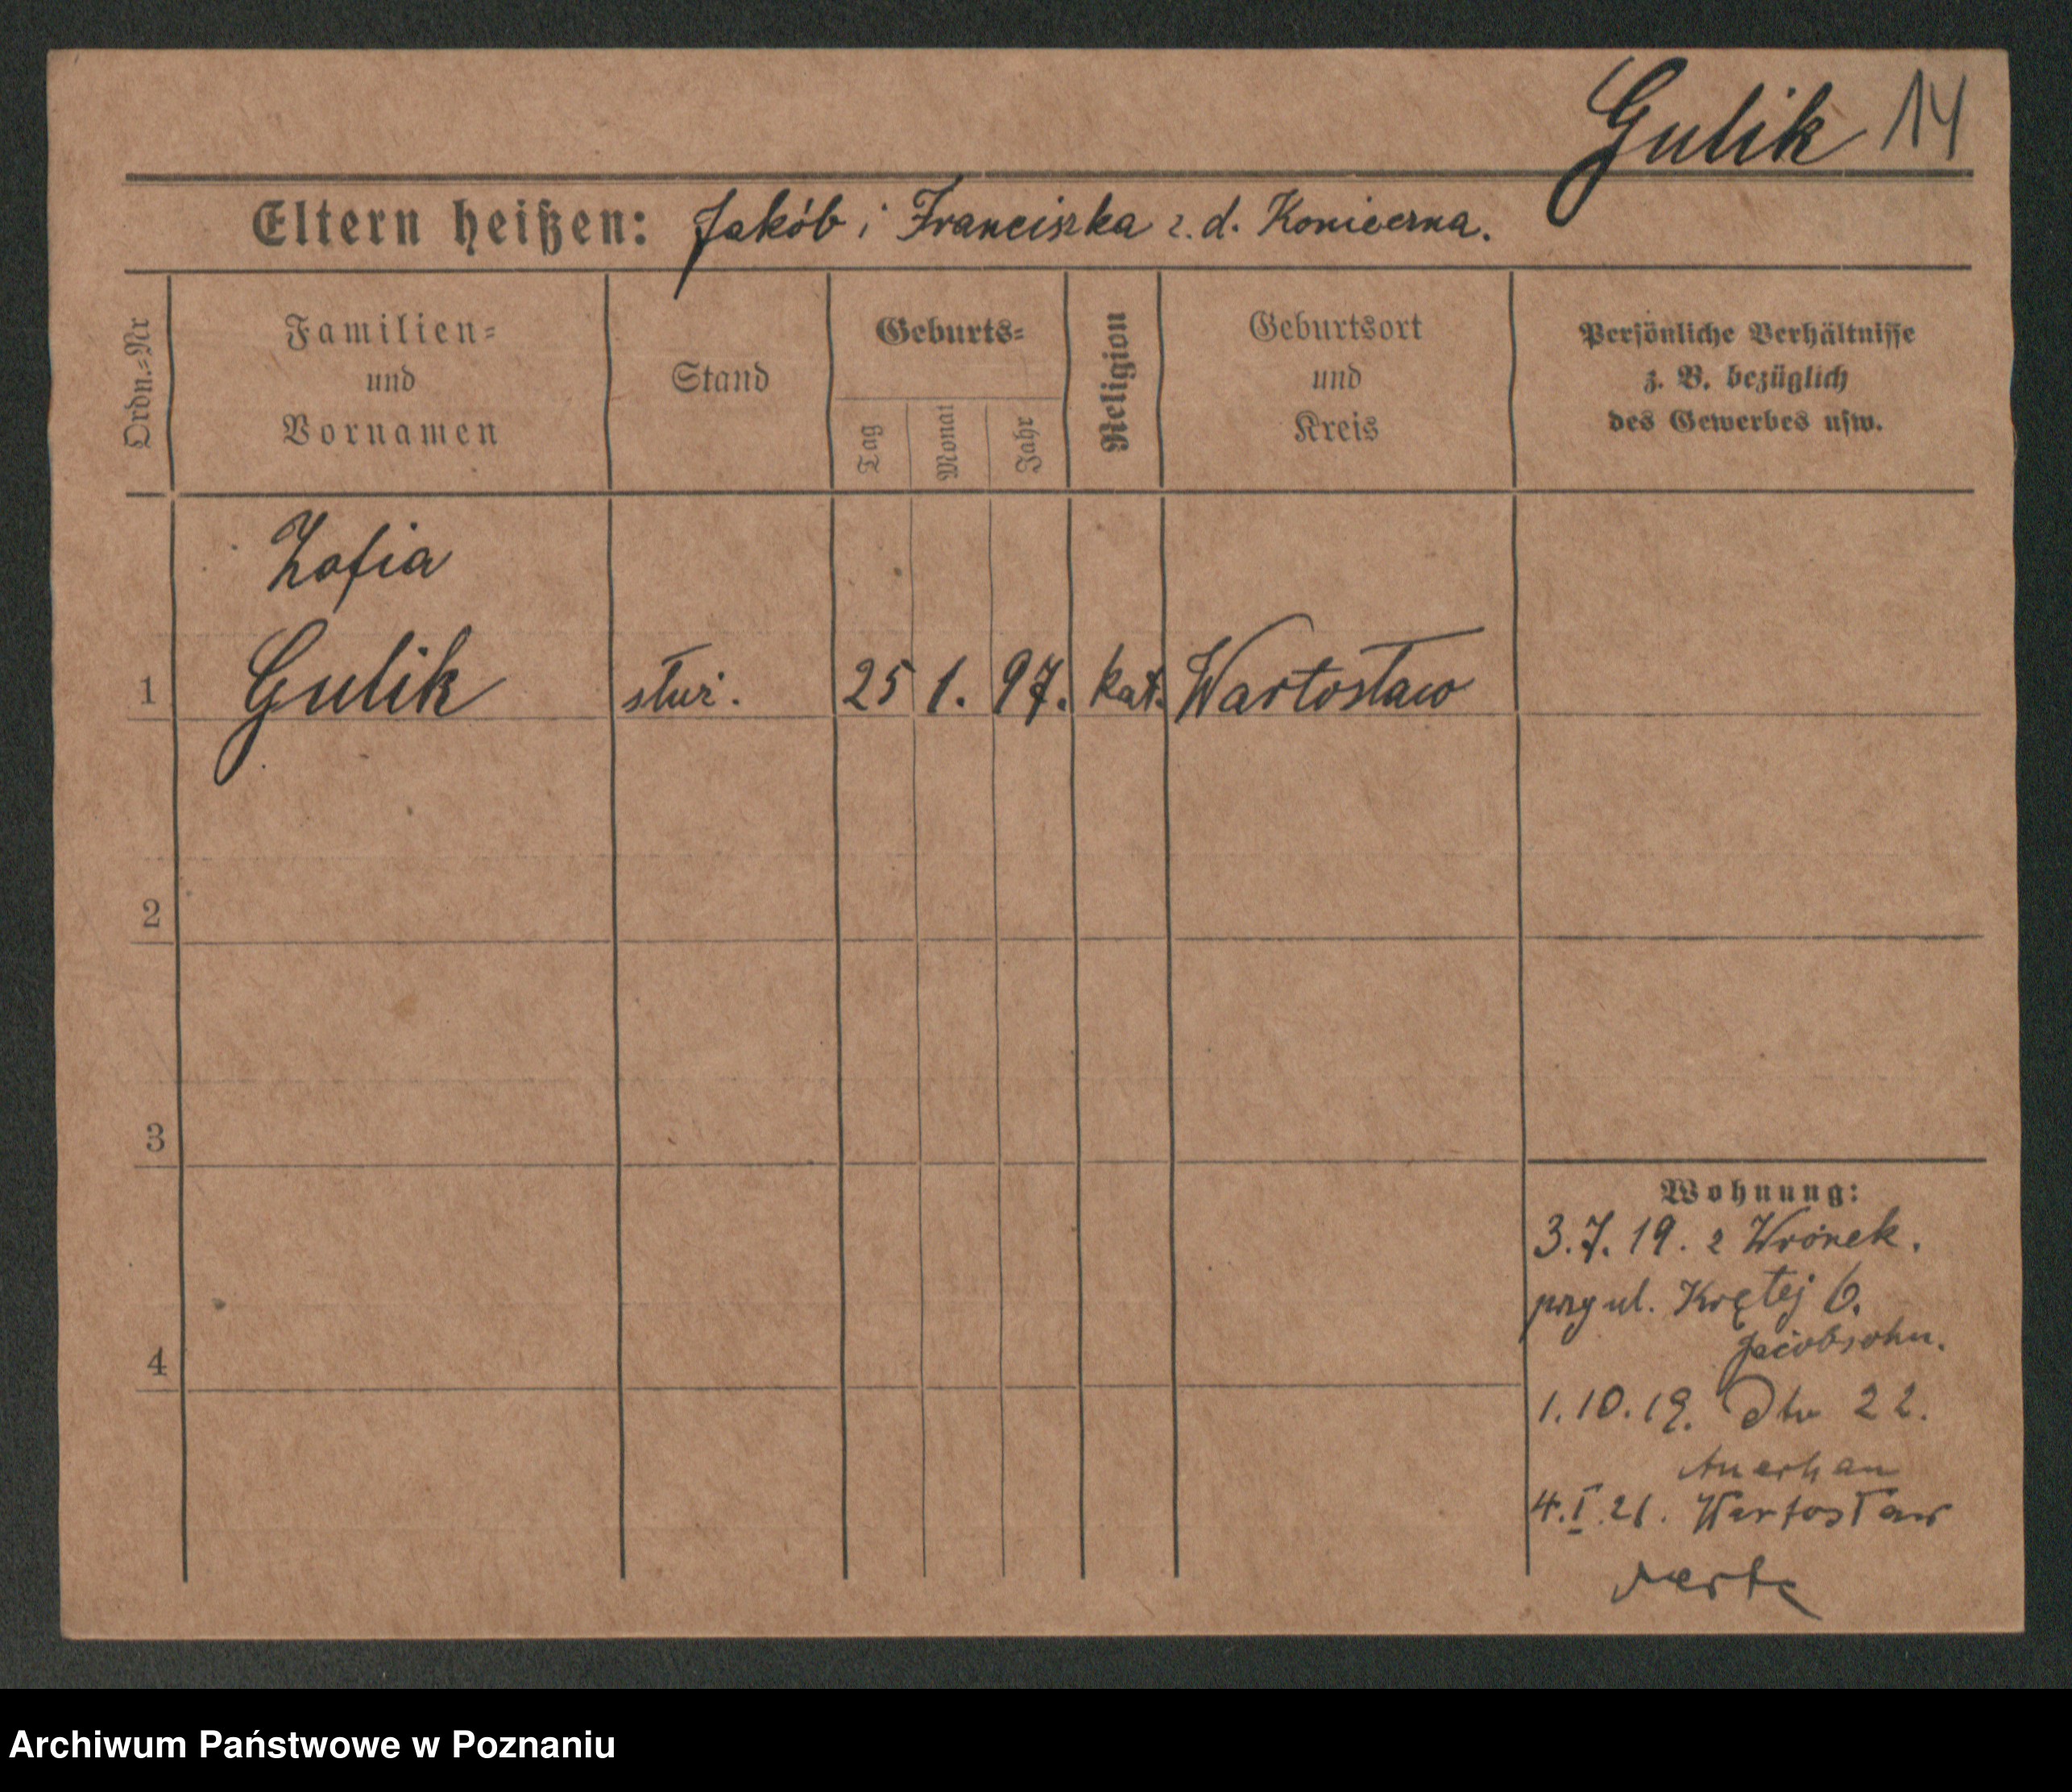 Gulik 14
Eltern heißen: Jakób i Franciszka z. d. Konieczna.
Ordn.=Nr
Familien=
und
Vornamen
Stand
Geburts=
Tag
Monat
Jahr
Religion
Geburtsort
und
Kreis
Persönliche Verhältnisse
z. B. bezüglich
des Gewerbes usw.
Zofia
1 Gulik służ. 25 1. 97. kat. Wartosław
2
3
4
Wohnung:
3.7.19. z Wronek.
przy ul. Krętej 6.
Jacobsohn.
1.10.19. Dtv 22.
4.I.21. Wartosław
Archiwum Państwowe w Poznaniu